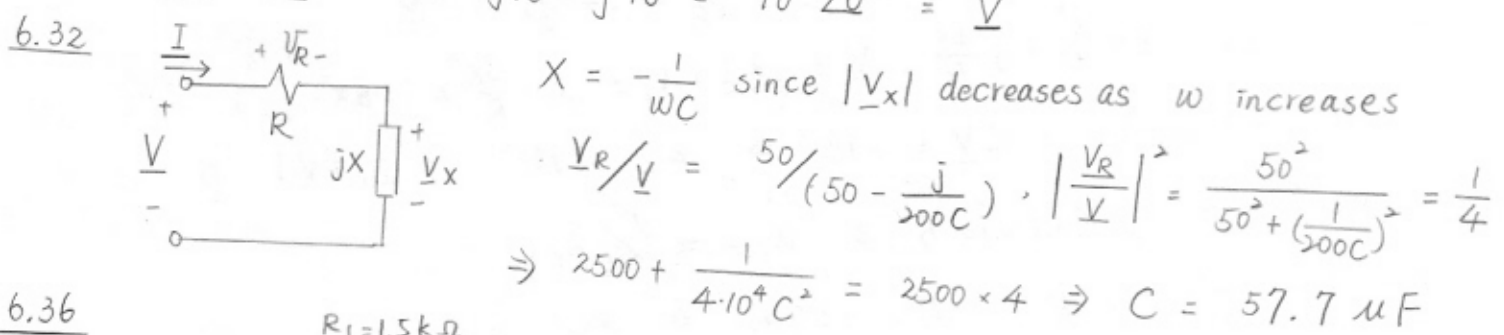 = 10 ∠0 = V
6.32
I
+ V_R -
X = -1/(ωC) since |V_X| decreases as ω increases
+
R
V
jX
+
V_X
-
-
V_R/V = 50/(50 - j/(200C)) , |V_R/V|² = 50²/(50² + (1/(200C))²) = 1/4
⇒ 2500 + 1/(4·10⁴C²) = 2500 × 4 ⇒ C = 57.7 μF
6.36
R₁=1.5kΩ